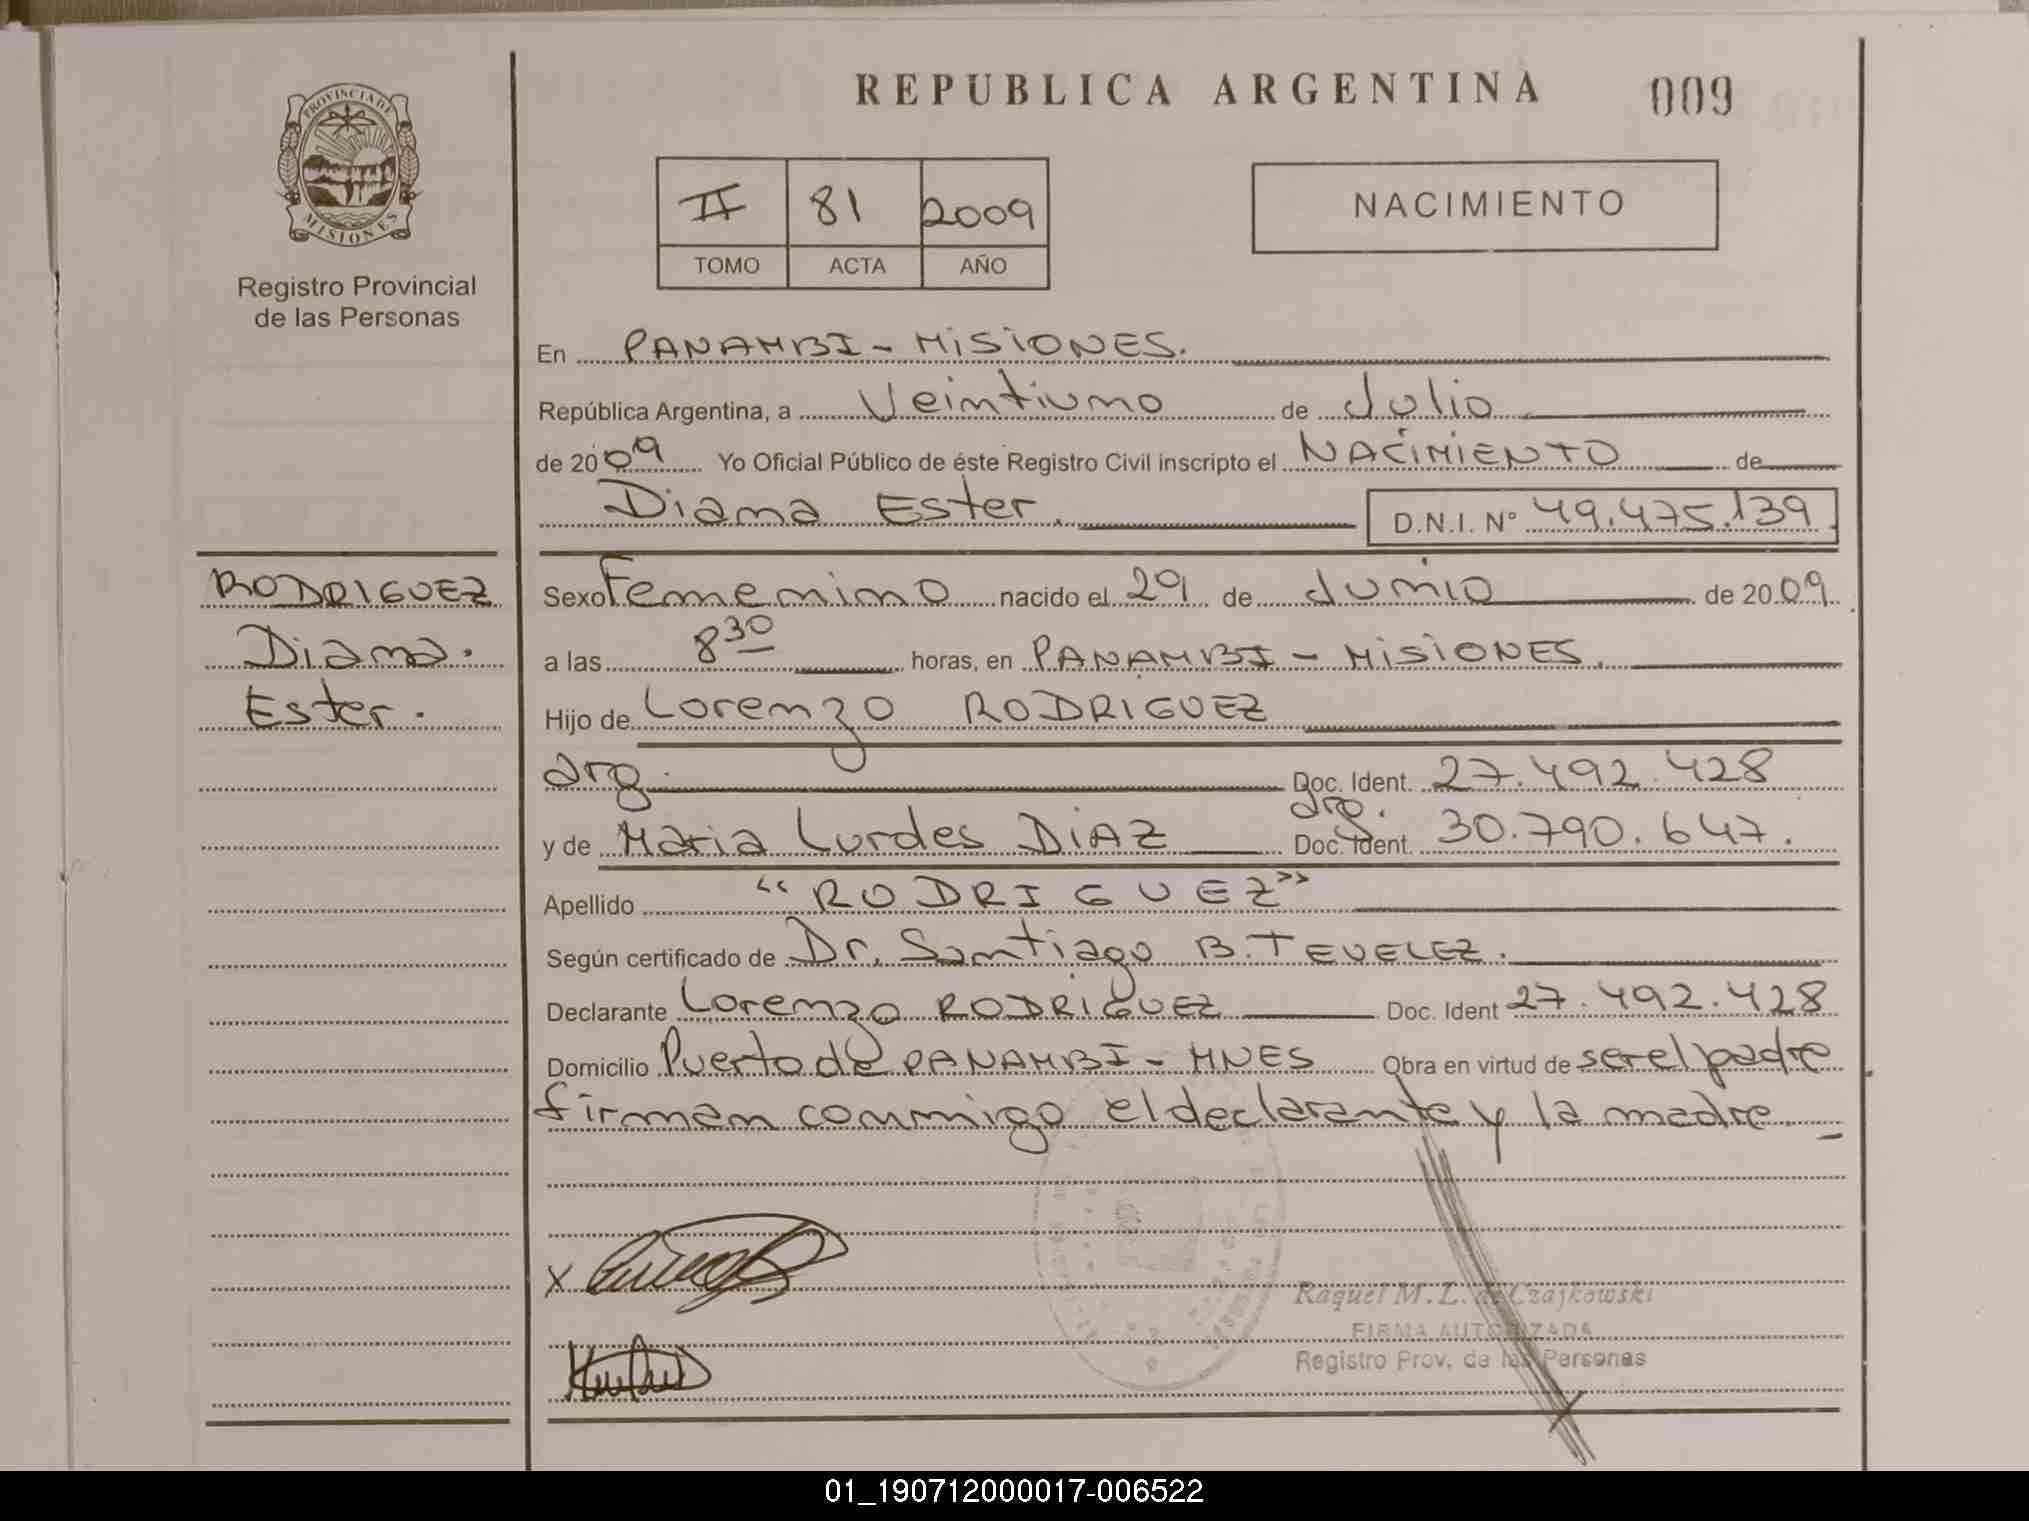 REPUBLICA ARGENTINA
009
PROVINCIA DE
MISIONES
Registro Provincial
de las Personas
II 81 2009
TOMO ACTA AÑO
NACIMIENTO
En PANAMBI - MISIONES.
República Argentina, a Veintiuno de Julio
de 2009 Yo Oficial Público de éste Registro Civil inscripto el NACIMIENTO de
Diana Ester. D.N.I. Nº 49.475.139
RODRIGUEZ
Diana.
Ester.
Sexo Femenino nacido el 29 de Junio de 2009.
a las 8 30 horas, en PANAMBI - MISIONES.
Hijo de Lorenzo RODRIGUEZ
arg. Doc. Ident. 27.492.428
arg.
y de Maria Lurdes DIAZ Doc. Ident. 30.790.647.
Apellido "RODRIGUEZ"
Según certificado de Dr. Santiago B. TEVELEZ.
Declarante Lorenzo RODRIGUEZ Doc. Ident 27.492.428
Domicilio Puerto de PANAMBI - MNES Obra en virtud de ser el padre
firman conmigo el declarante y la madre
X
Raquel M. L. de Czajkowski
FIRMA AUTORIZADA
Registro Prov. de las Personas
01_190712000017-006522